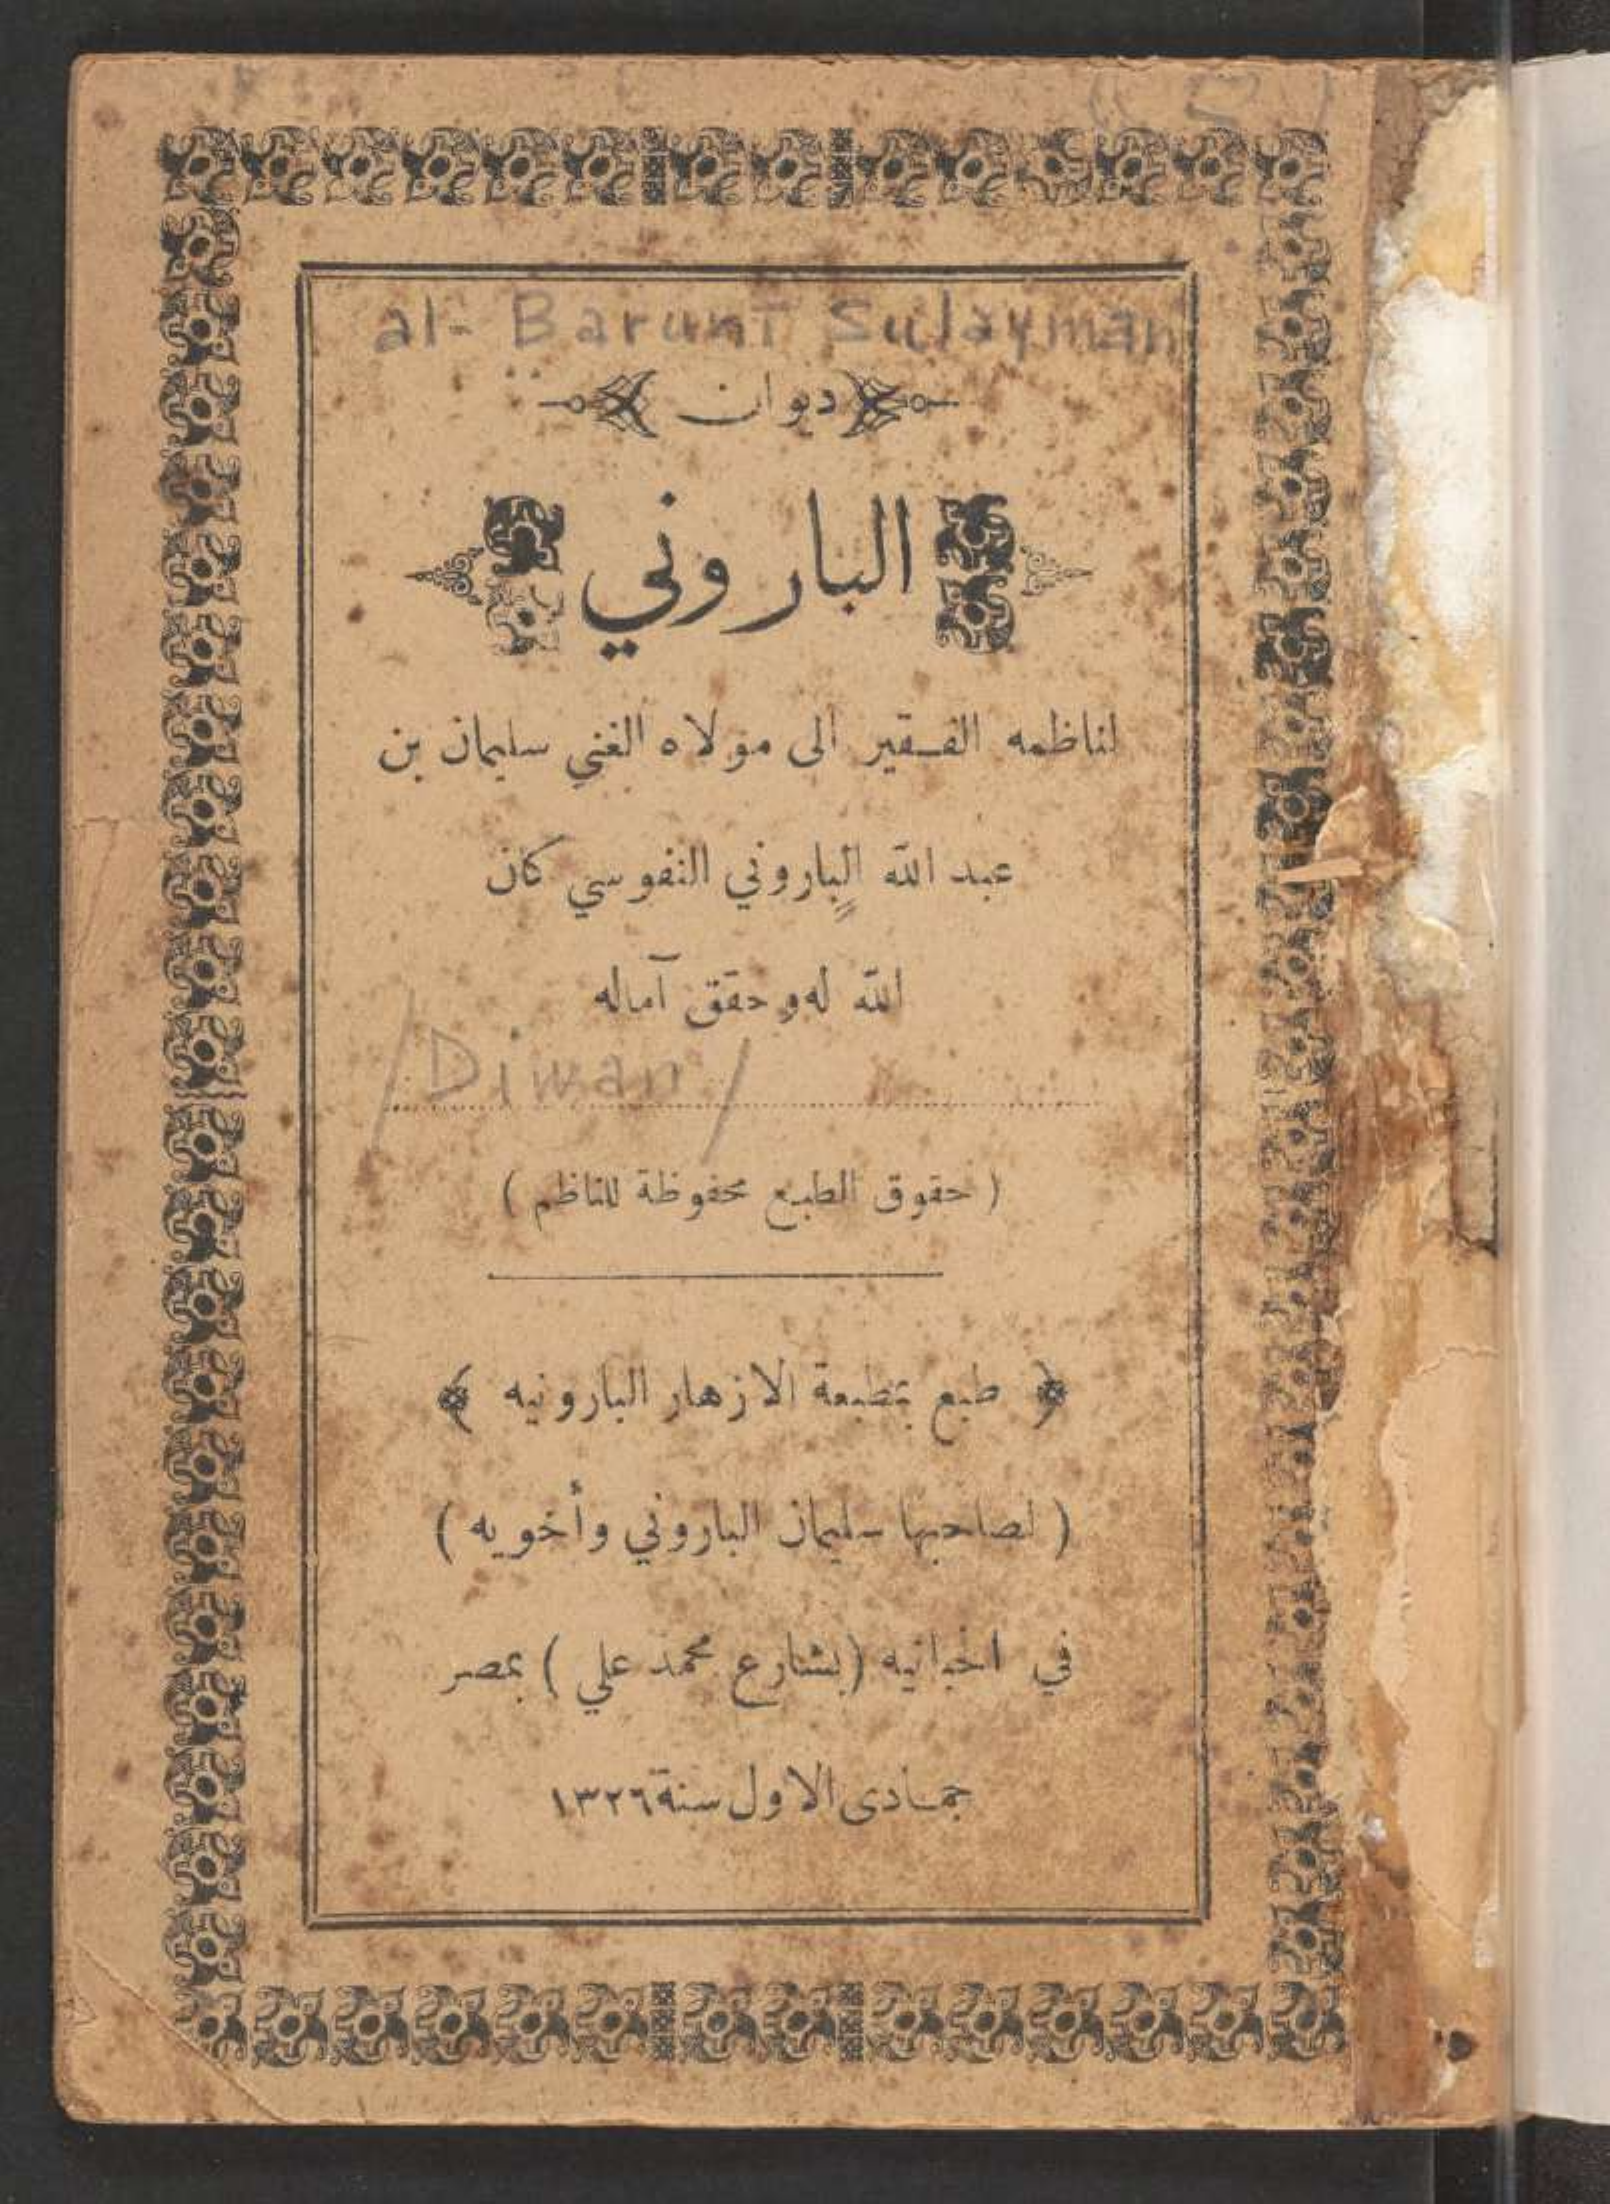 al-Barunī Sulayman
ديوان
الباروني
لناظمه الفقير الى مولاه الغني سليمان بن
عبد الله الباروني النفوسي كان
الله له وحقق آماله
/Diwan/
( حقوق الطبع محفوظة للناظم )
طبع بمطبعة الازهار البارونيه
( لصاحبها سليمان الباروني وأخويه )
في (بشارع محمد علي ) بمصر
جمادى الاول سنة ١٣٢٦